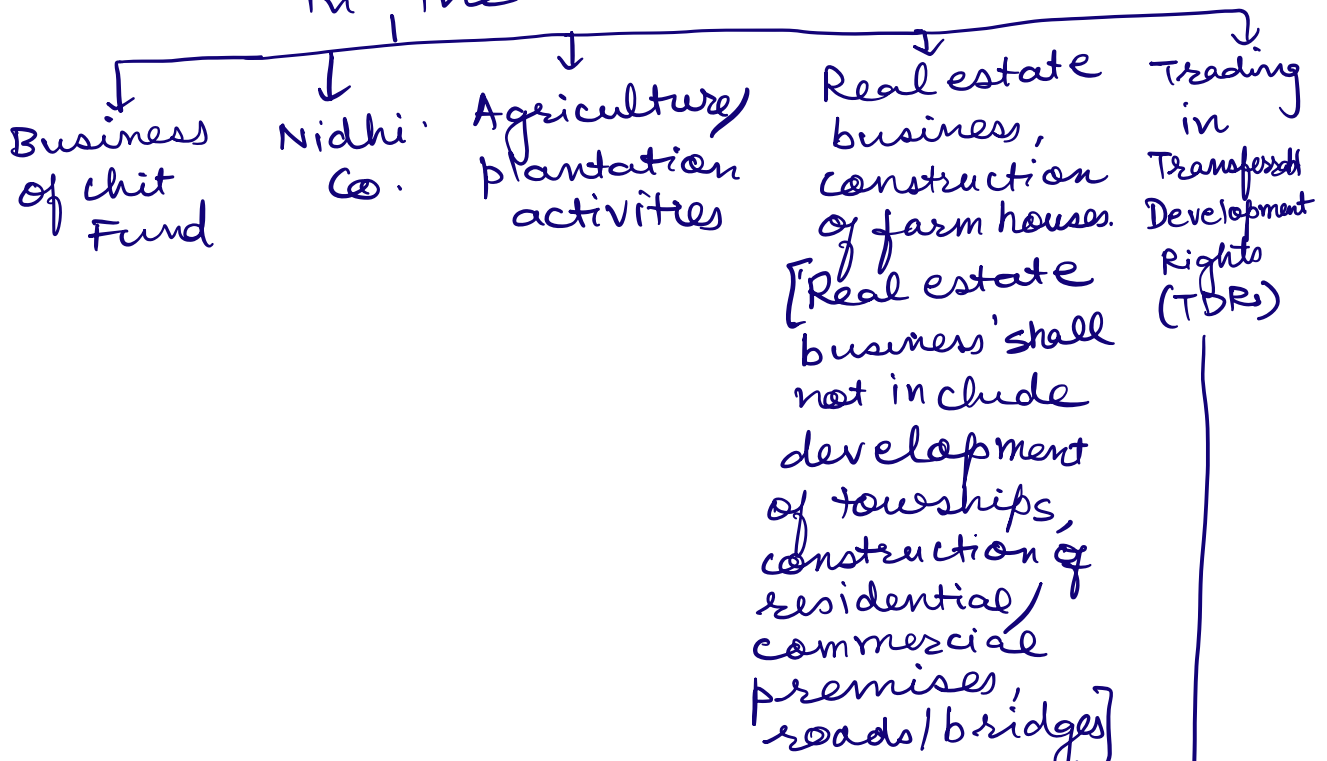 in the
Business
of chit
Fund
Nidhi
Co.
Agriculture/
plantation
activities
Real estate
business,
construction
of farm houses.
["Real estate
business' shall
not include
development
of towships,
construction of
residential/
commercial
premises,
roads/bridges]
Trading
in
Development
Rights
(TDRs)